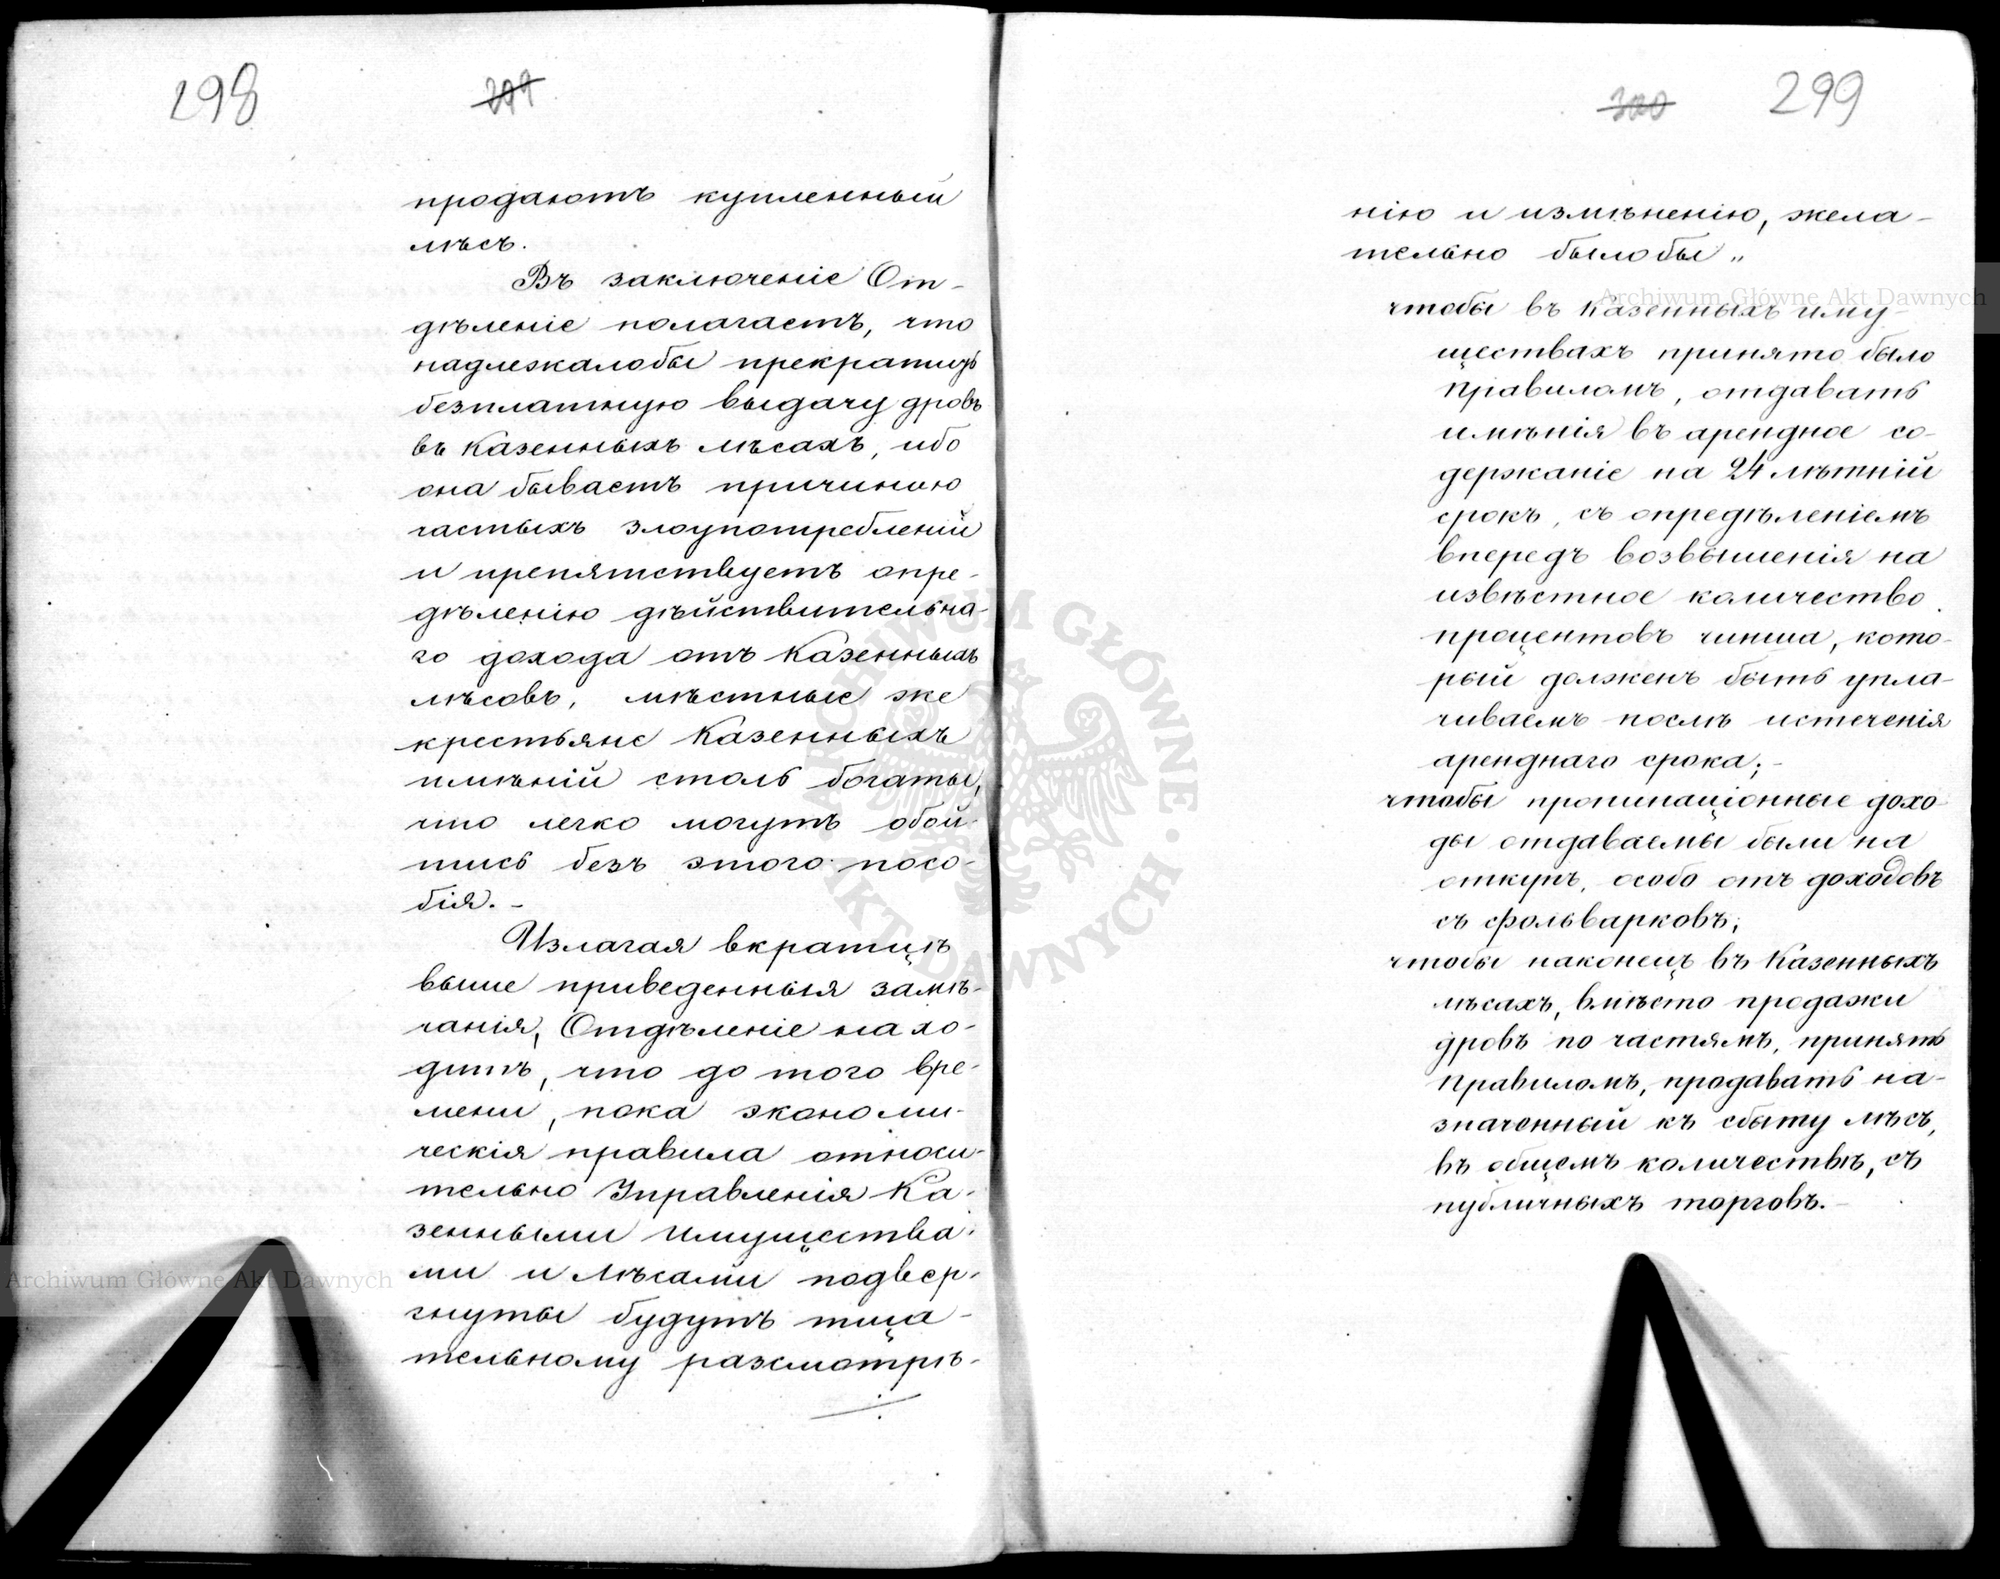 298
299
продаютъ купленный
лѣсъ.
Въ заключеніе От-
дѣленіе полагаетъ, что
надлежалобы прекратить
безплатную выдачу дровъ
въ Казенныхъ лѣсахъ, ибо
она бываетъ причиною
частыхъ злоупотребленій
и препятствуетъ опре-
дѣленію дѣйствительна-
го дохода отъ Казенныхъ
лѣсовъ, мѣстные же
крестьяне Казенныхъ
имѣній столь богаты,
что легко могутъ обой-
тись безъ этого посо-
бія. -
Излагая вкратцѣ
выше приведенныя замѣ-
чанія, Отдѣленіе нахо-
дитъ, что до того вре-
мени, пока экономи-
ческія правила относи-
тельно Управленія Ка-
зенными Имущества-
ми и Лѣсами подвер-
гнуты будутъ тща-
тельному разсмотрѣ-
300
299
нію и измѣненію, жела-
тельно былобы „
чтобы въ Казенныхъ иму-
ществахъ принято было
правиломъ, отдавать
имѣнія въ арендное со-
держаніе на 24 лѣтній
срокъ, съ опредѣленіемъ
впередъ возвышенія на
извѣстное количество
процентовъ чинша, кото-
рый долженъ быть упла-
чиваемъ послѣ истеченія
аренднаго срока; -
чтобы пропинаціонные дохо-
ды отдаваемы были на
откупъ, особо отъ доходовъ
съ фольварковъ;
чтобы наконецъ въ Казенныхъ
лѣсахъ, вмѣсто продажи
дровъ по частямъ, принять
правиломъ, продавать на-
значенный къ сбыту лѣсъ,
въ общемъ количествѣ, съ
публичныхъ торговъ. -
Archiwum Główne Akt Dawnych
Archiwum Główne Akt Dawnych
ARCHIWUM GŁÓWNE AKT DAWNYCH